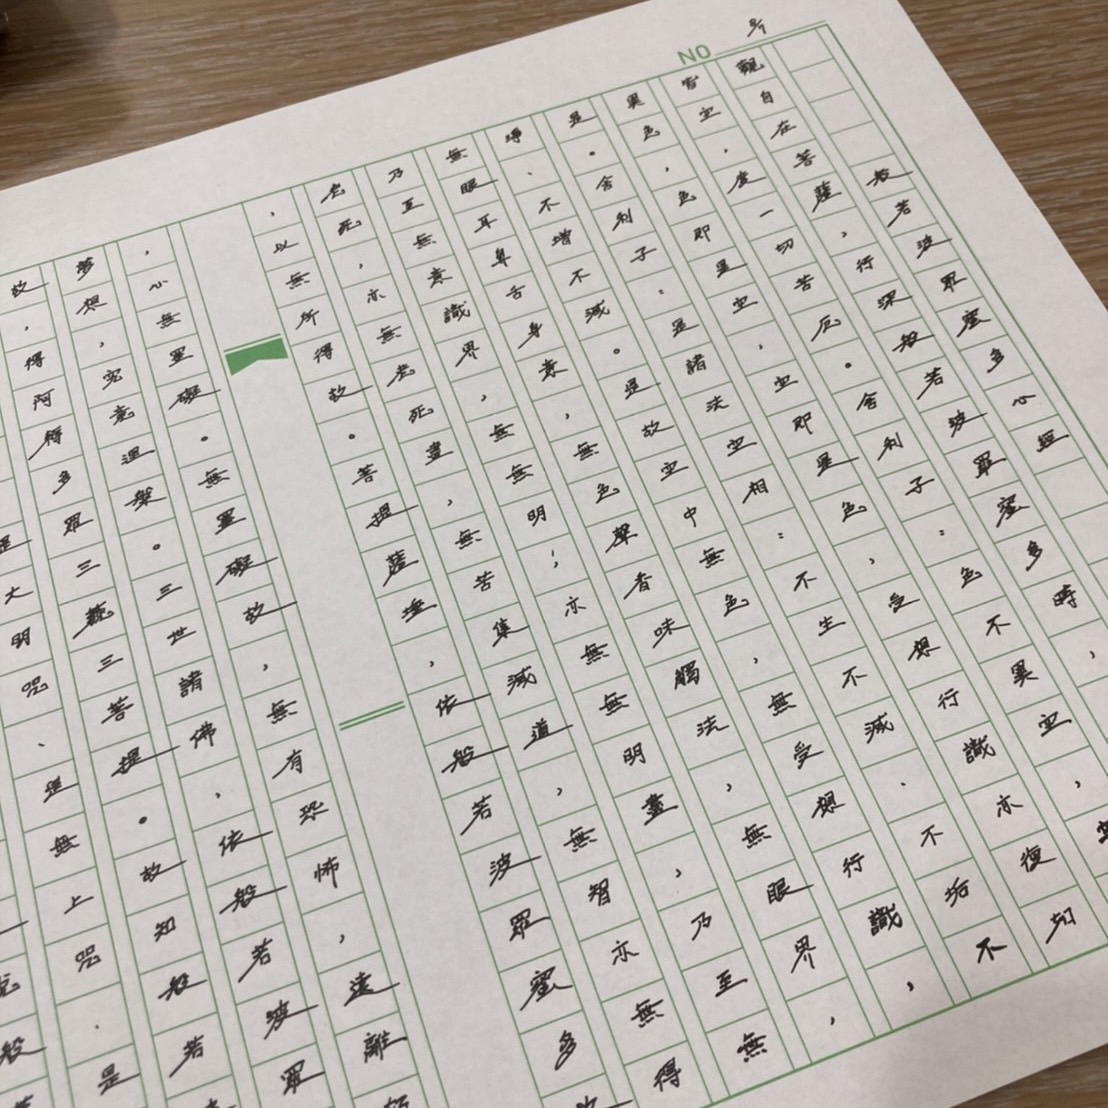 NO 号
般若波羅蜜多心經
觀自在菩薩，行深般若波羅蜜多時，
皆空，度一切苦厄。舍利子：色不異空，空
異色，色即是空，空即是色，受想行識亦復如
是。舍利子：是諸法空相：不生不滅、不垢不
淨、不增不減。是故空中無色，無受想行識，
無眼耳鼻舌身意，無色聲香味觸法，無眼界，
乃至無意識界，無無明；亦無無明盡，乃至無
老死，亦無老死盡，無苦集滅道，無智亦無得
，以無所得故。菩提薩埵，依般若波羅蜜多
，心無罣礙。無罣礙故，無有恐怖，遠離
夢想，究竟涅槃。三世諸佛，依般若波羅
故，得阿耨多羅三藐三菩提。故知般若
是大明咒、是無上咒、是
般